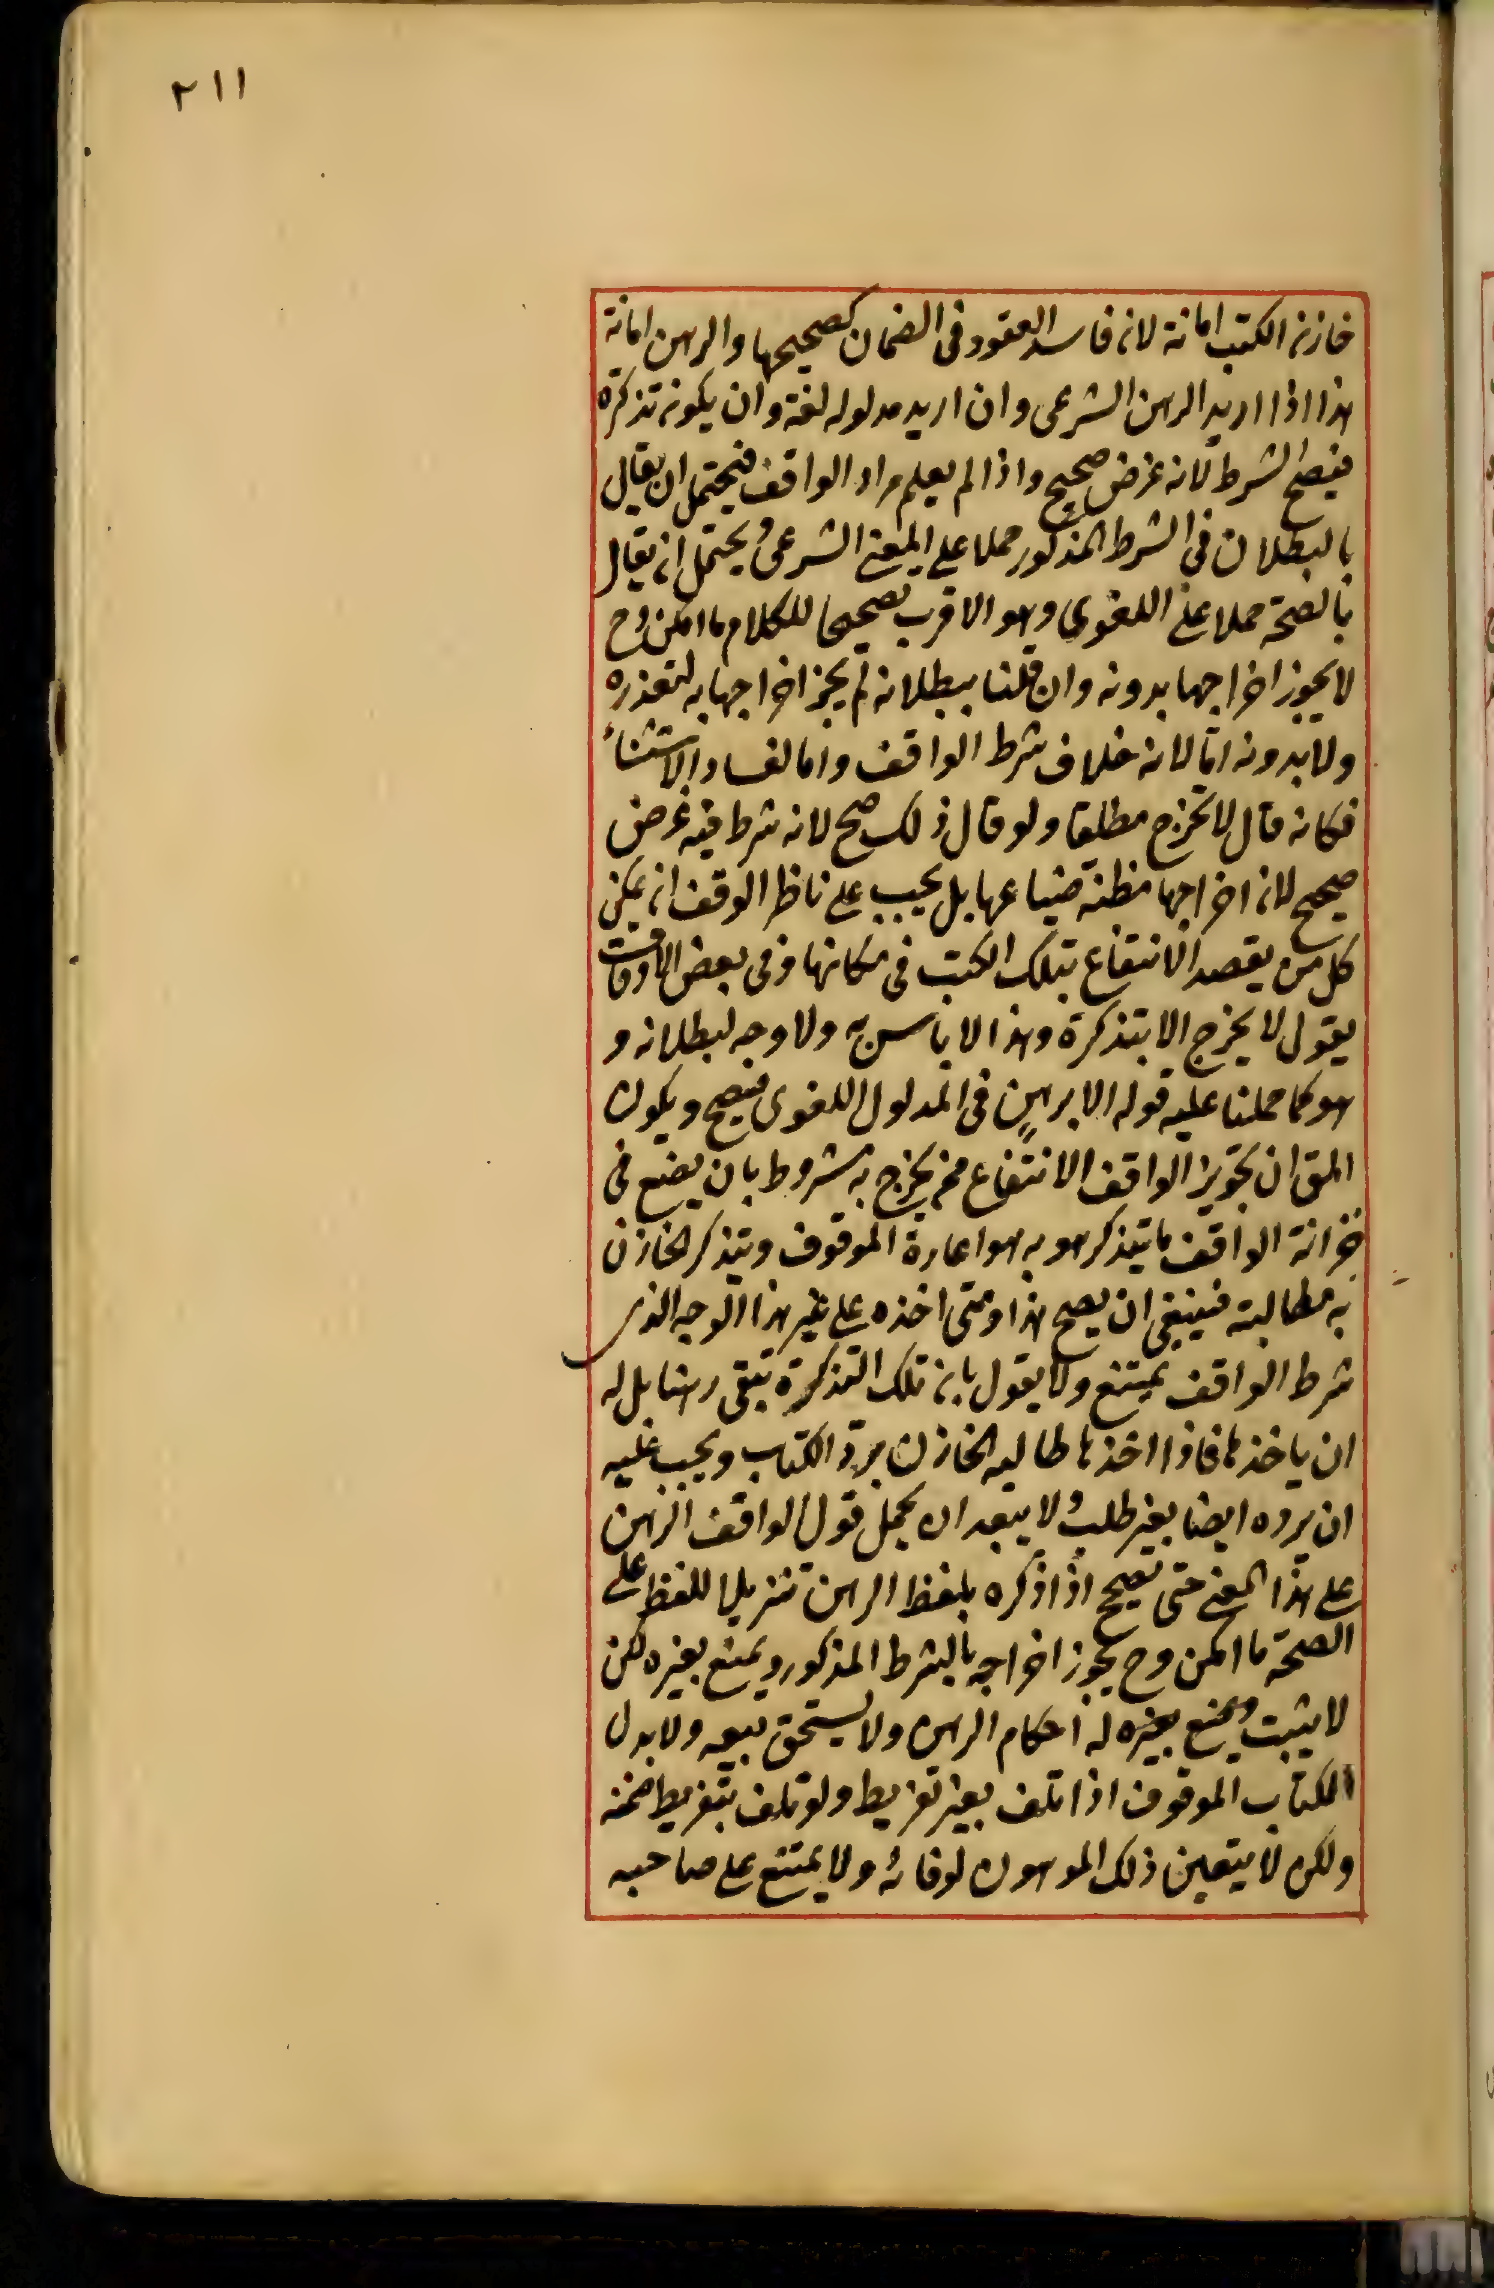 ٢١١
خازن الكتب امانة لان فاسد العقود فى الضمان كصحيحها والرهن امانة
هذا اذا اريد الرهن الشرعى وان اريد مدلوله لغة وان يكون تذكرة
فيصح الشرط لانه غرض صحيح واذا لم يعلم مراد الواقف فيحتمل ان يقال
بالبطلان فى الشرط المذكور حملا على المعنى الشرعى ويحتمل ان يقال
بالصحة حملا على اللغوى وهو الاقرب تصحيحا للكلام ما امكن وح
لا يجوز اخراجها بدونه وان قلنا ببطلانه لم يجز اخراجها به لتعذره
ولا بدونه اما لانه خلاف شرط الواقف واما لفساد الاستثناء
فكانه قال لا تخرج مطلقا ولو قال ذلك صح لانه شرط فيه غرض
صحيح لان اخراجها مظنة ضياعها بل يجب على ناظر الوقف ان يمكن
كل من يقصد الانتفاع بتلك الكتب فى مكانها وفى بعض الاوقات
يقول لا يخرج الا بتذكرة وهذا لا باس به ولا وجه لبطلانه و
هو كما حملنا عليه قوله الا برهن فى المدلول اللغوى فيصح ويكون
المق ان تجويز الواقف الانتفاع لمن يخرج به مشروط بان يضع فى
خزانة الواقف ما يتذكر هو به هو اعارة الموقوف ويتذكر الخازن
به مطالبته فينبغى ان يصح هذا ومتى اخذه على غير هذا الوجه الذى
شرط الواقف يمتنع ولا يقول بان تلك التذكرة تبقى رهنا بل له
ان ياخذها فاذا اخذها طالبه الخازن برد الكتاب ويجب عليه
ان يرده ايضا بغير طلب ولا يبعد ان يحمل قول الواقف الرهن
على هذا المعنى حتى يصح اذا ذكره بلفظ الرهن تنزيلا للفظ على
الصحة ما امكن وح يجوز اخراجه بالشرط المذكور ويمنع بغيره لكن
لا يثبت ويمنع بغيره له احكام الرهن ولا يستحق بيعه ولا بدل
الكتاب الموقوف اذا تلف بغير تفريط ولو تلف بتفريط ضمنه
ولكن لا يتعين ذلك المرهون لوفائه ولا يمتنع على صاحبه